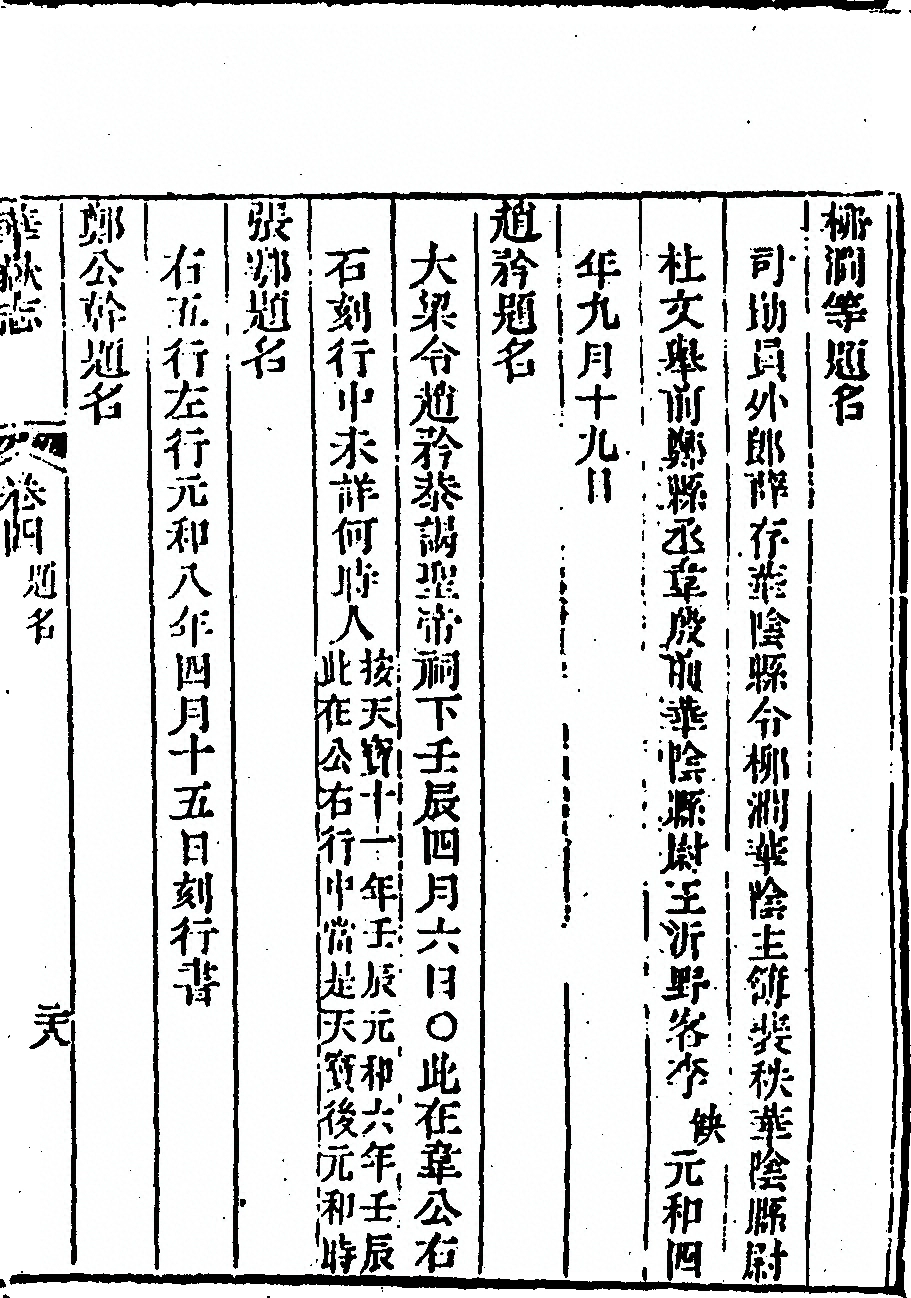 柳澗等題名
司勛員外郎薛存華陰縣令柳澗華陰主簿裴秩華陰縣尉
杜文舉前鄭縣丞韋殷前華陰縣尉王沂野客李缺元和四
年九月十九日
趙矜題名
大梁令趙矜恭謁聖帝祠下壬辰四月六日〇此在韋公右
石刻行中未詳何時人按天寶十一年壬辰元和六年壬辰
此在公右行中當是天寶後元和時
張鄂題名
右五行左行元和八年四月十五日刻行書
鄭公幹題名
華嶽志
卷四
題名
二十八